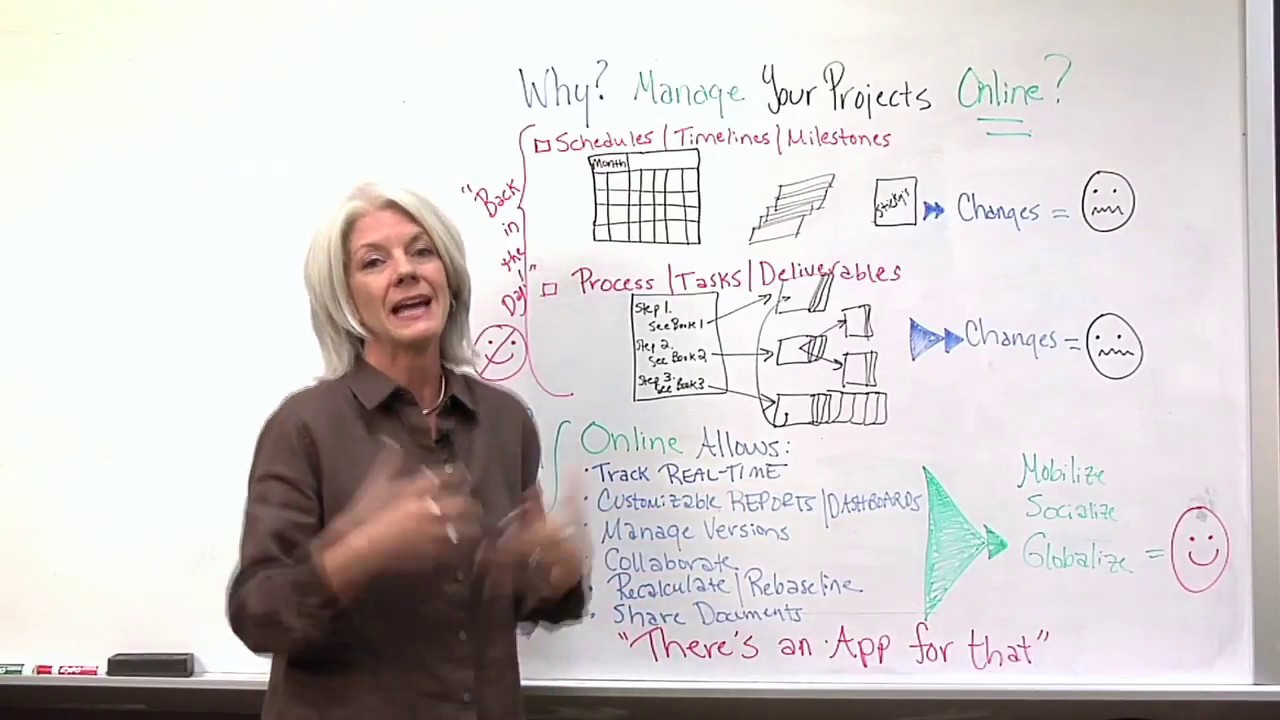 Why? Manage Your Projects Online?
"Back in the Day"
Schedules / Timelines / Milestones
Month
Sticky's
Changes =
Process / Tasks / Deliverables
Step 1.
See Book 1
Step 2.
See Book 2
Step 3.
See Book 3
Changes =
Online Allows:
· Track REAL-TIME
· Customizable REPORTS / DASHBOARDS
· Manage Versions
· Collaborate
· Recalculate / Rebaseline
· Share Documents
Mobilize
Socialize
Globalize =
"There's an App for that"
EXPO